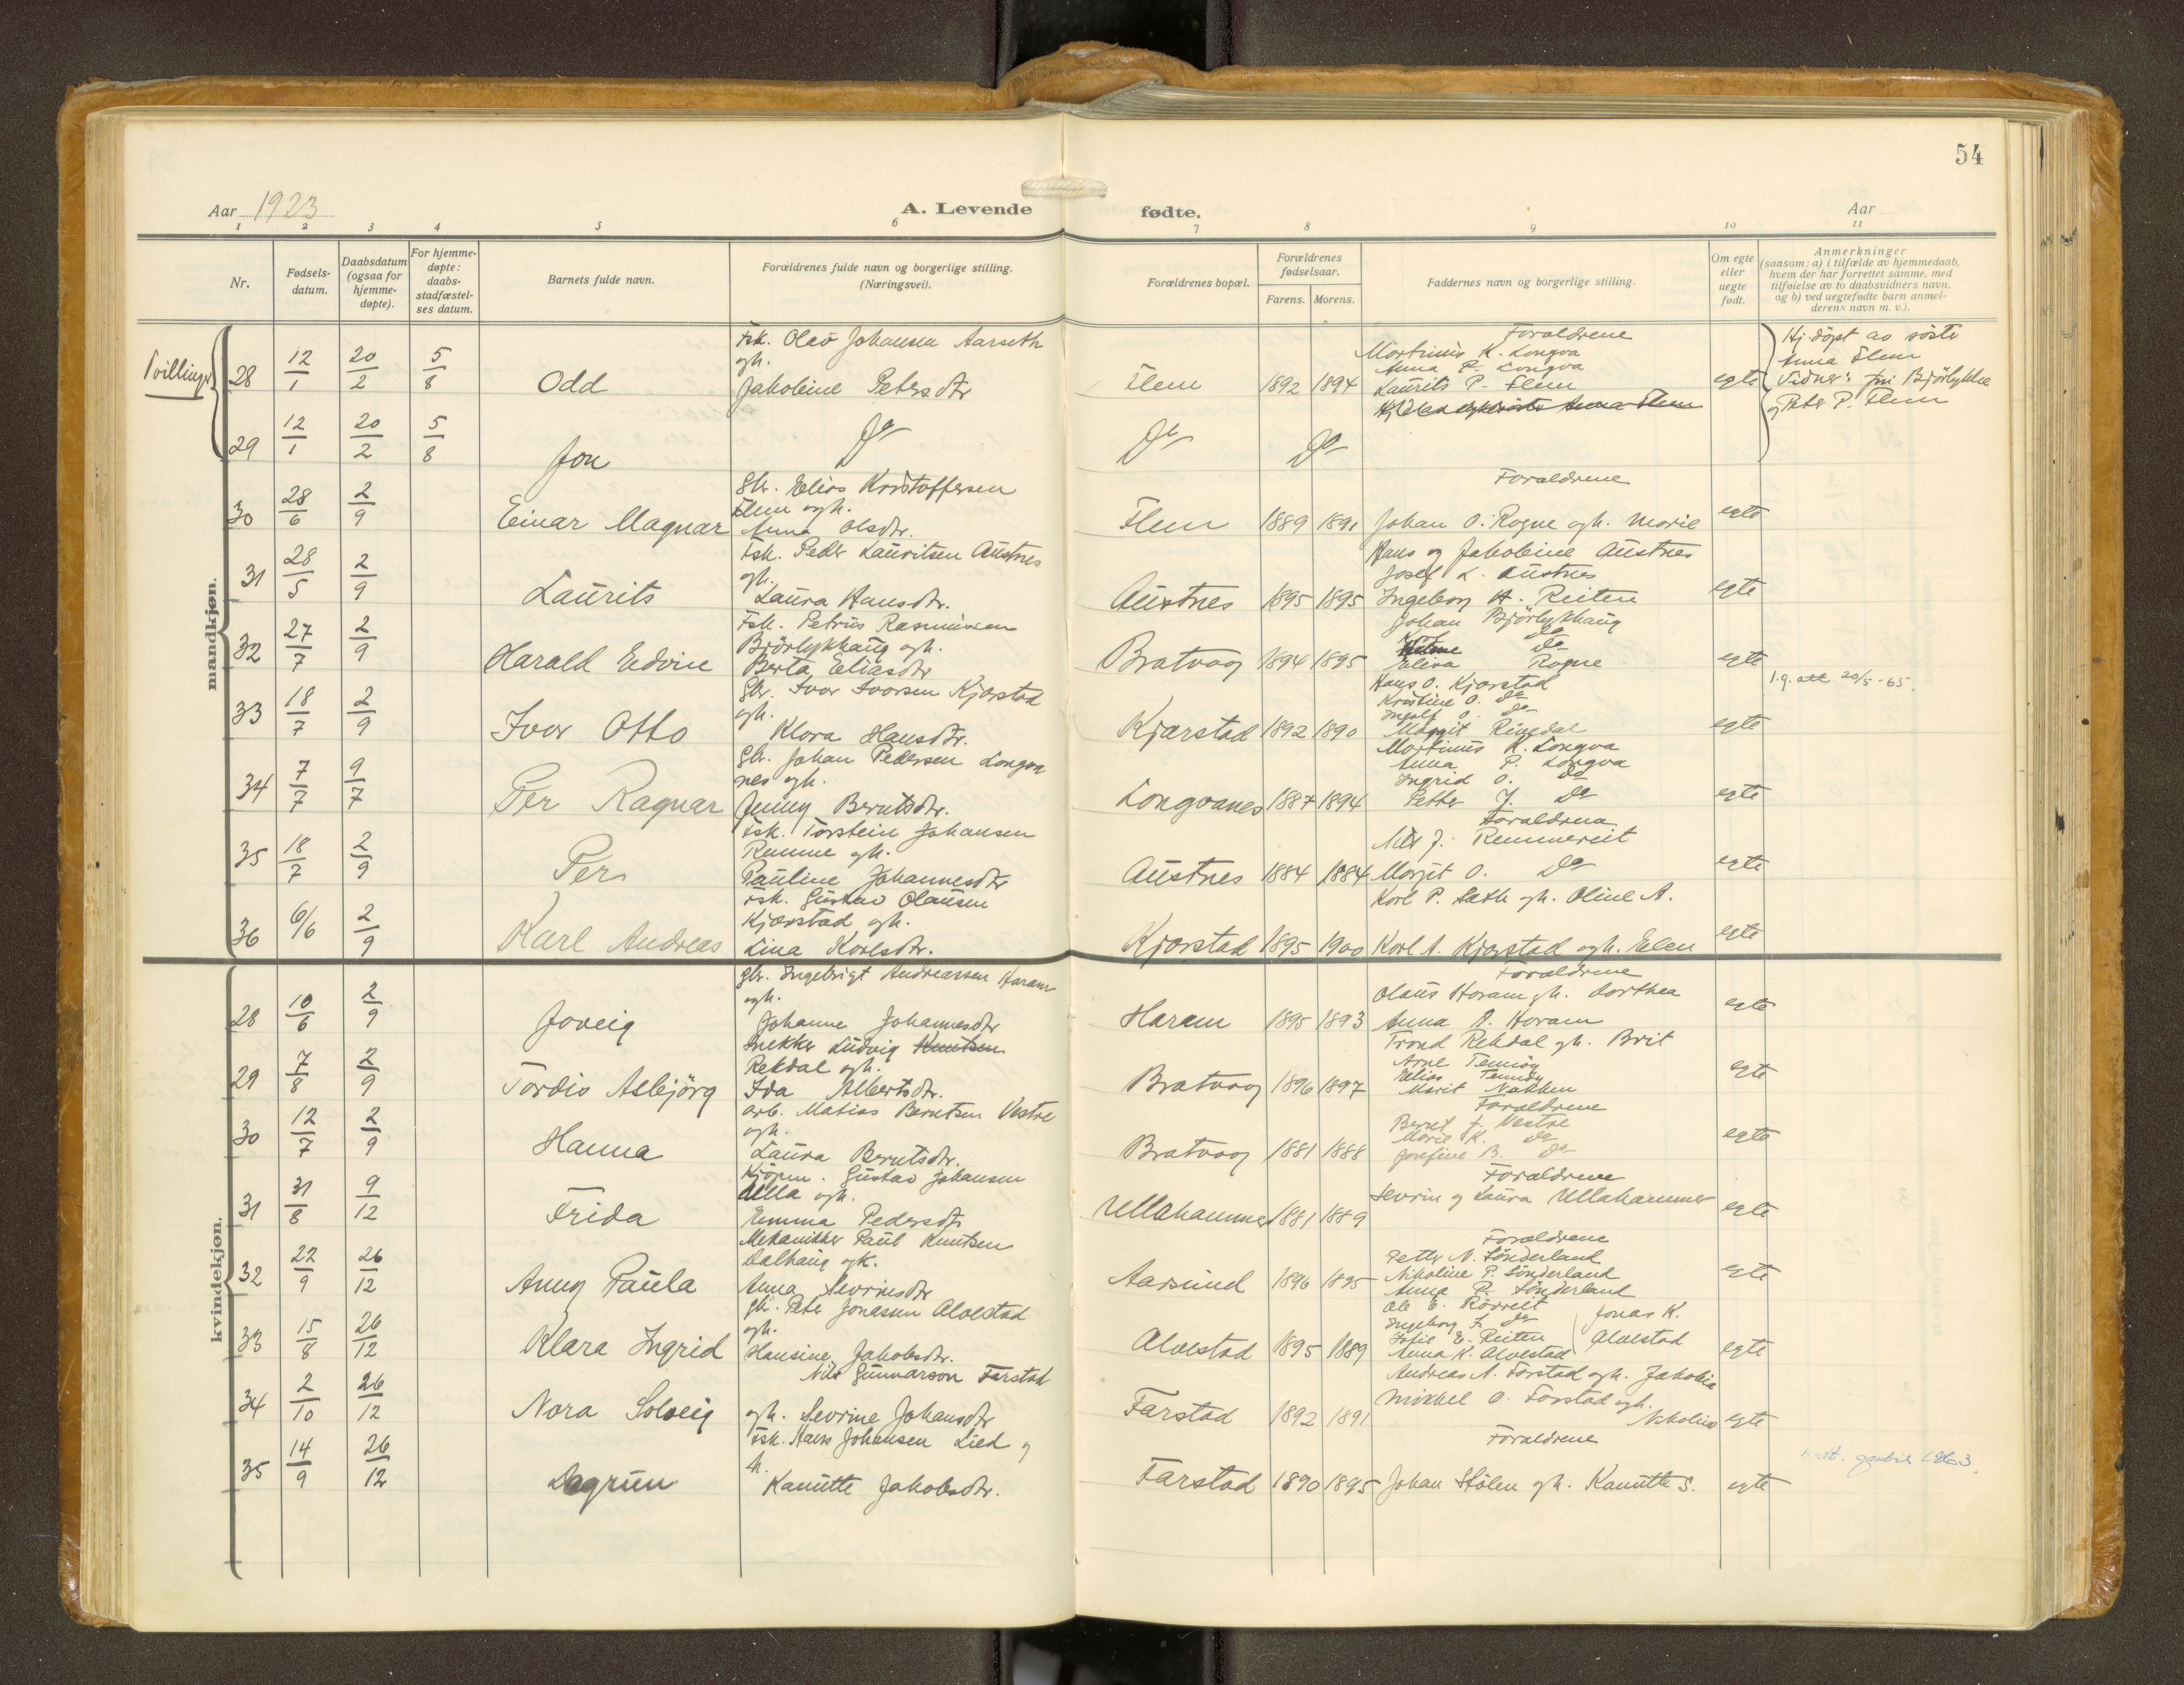 54
Aar 1923
A. Levende fødte.
Aar
1 2 3 4 5 6 7 8 9 10 11
Nr.
Fødsels-
datum.
Daabsdatum
(ogsaa for
hjemme-
døpte).
For hjemme-
døpte:
daabs-
stadfæstel-
ses datum.
Barnets fulde navn.
Forældrenes fulde navn og borgerlige stilling.
(Næringsvei).
Forældrenes bopæl.
Forældrenes
fødselsaar.
Farens. Morens.
Faddernes navn og borgerlige stilling.
Om egte
eller
uegte
født.
Anmerkninger
(saasom: a) i tilfælde av hjemmedaab,
hvem der har forrettet samme, med
tilføielse av to daabsvidners navn,
og b) ved uegtefødte barn anmel-
derens navn m. v.).
mandkjøn.
28 12/1 20/2 5/8 Odd
Fsk. Olav Johansen Aarseth
gh.
Jakobine Petersdtr
Flem 1892 1894
Foraldrene
Martinus K. Longva
Anna P. Longva
Laurits P. Flem
egte
Hj. döpt av
Anna Flem
Bjørlykke
og Peter P. Flem
29 12/1 20/2 5/8 Jon
Do Do Do
30 28/6 2/9 Einar Magnar
Gbr. Elias Kristoffersen
Flem ogh.
Anna Olsdtr.
Flem 1889 1891
Foraldrene
Johan O. Rogne ogh. Marie
egte
31 28/5 2/9 Laurits
Fsk. Peder Lauritsen Austnes
gh.
Laura Hansdtr.
Austnes 1895 1895
Hans og Jakobine Austnes
Josef L. Austnes
Ingeborg H. Reiten
egte
32 27/7 2/9 Harald Edvin
Fsk. Petrus Rasmussen
Bjørlykhaug ogh.
Berta Eliasdtr
Bratvaag 1894 1895
Johan Bjørlykhaug
Do
Do
Elisa Rogne
egte
33 18/7 2/9 Ivar Otto
Gbr. Ivar Ivarsen Kjærstad
ogh.
Klara Hansdtr.
Kjærstad 1892 1890
Hans O. Kjærstad
Kristine O. Do
Ingolf O. Do
Margit Rindal
egte
20/5-65.
34 7/7 9/7 Per Ragnar
Gbr. Johan Pedersen Longva
nes ogh.
Jenny Berntsdtr.
Longvanes 1887 1894
Martinus K. Longva
Anna P. Longva
Ingrid O. Do
Petter J. Do
egte
35 18/7 2/9 Per
Fsk. Torstein Johansen
Remme ogh.
Pauline Johannesdtr
Austnes 1884 1884
Foraldrena
Nils J. Remmereit
Margit O. Do
egte
36 6/6 2/9 Karl Andreas
Fsk. Gustav Olausen
Kjærstad ogh.
Lina Karlsdtr.
Kjærstad 1895 1900
Karl P. Sæth gh. Oline A.
Karl A. Kjærstad ogh. Elen
egte
kvindekjøn.
28 10/6 2/9 Joveig
gbr. Ingebrigt Andreassen Haram
ogh.
Johanne Johannesdtr
Haram 1895 1893
Foraldrene
Olaus Haram gh. Dorthea
Anna A. Haram
egte
29 7/8 2/9 Tordis Asbjörg
Snekker Ludvig Knutsen
Rekdal ogh.
Ida Albertsdtr.
Bratvaag 1896 1897
Trond Rekdal gh. Brit
Arne Tennöy
Elias Tennöy
Marit Nakken
egte
30 12/7 2/9 Hanna
arb. Matias Berntsen Vestre
ogh.
Laura Berntsdtr.
Bratvaag 1881 1888
Foraldrene
Bernt J. Vestre
Marie K. Do
Josefine B. Do
egte
31 31/8 9/12 Frida
Kjöpm. Gustav Johansen
Ulla ogh.
Emma Pedersdtr
Ullahammer 1881 1889
Foraldrene
Sevrin og Laura Ullahammer
egte
32 22/9 26/12 Anny Paula
Mekaniker Paul Knutsen
Dalhaug ogh.
Anna Sevrinsdtr
Aarsund 1896 1895
Foraldrene
Petter N. Sønderland
Nikoline P. Sønderland
Anna P. Sønderland
egte
33 15/8 26/12 Klara Ingrid
gbr. Peter Jonassen Alvestad
ogh.
Hansine Jakobsdtr.
Alvestad 1895 1889
Ole E. Rörveit
Ingeborg J. Do
Sofie E. Reiten
Anna K. Alvestad
Jonas K.
Alvestad
egte
34 2/10 26/12 Nora Solveig
Nils Gunnarson Farstad
ogh. Sevrine Johansdtr
Farstad 1892 1891
Andreas N. Farstad ogh. Jakobia
Mikkel O. Farstad ogh.
Nikolina
egte
35 14/9 26/12 Dagrun
Fsk. Hans Johansen Lied og
h.
Kanutte Jakobsdtr.
Farstad 1890 1895
Foraldrene
Johan Stölen gh. Kanutte S.
egte